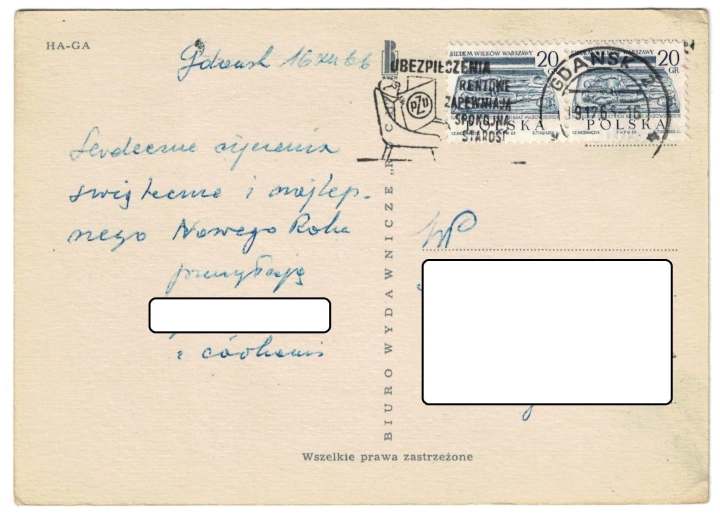 HA-GA
Gdańsk 16 XII 66
Serdeczne życzenia
świąteczne i najlep-
szego Nowego Roku
przesyłają
z córkami
BIURO WYDAWNICZE „R
Wszelkie prawa zastrzeżone
UBEZPIECZENIA
RENTOWE
ZAPEWNIAJĄ
SPOKOJNĄ
STAROŚĆ
PZU
SIEDEM WIEKÓW WARSZAWY
20
GR
POLSKA
SIEDEM WIEKÓW WARSZAWY
20
GR
POLSKA
GDAŃSK
WP